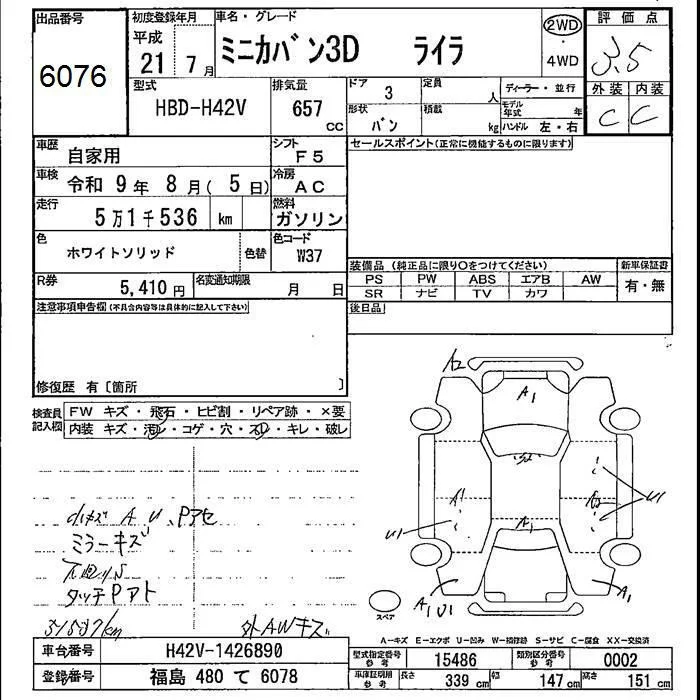 出品番号
6076
初度登録年月
平成
21 7月
車名・グレード
ミニカバン3D ライラ
2WD
・
4WD
評価点
3.5
外装 内装
C C
型式
HBD-H42V
排気量
657
cc
ドア
3
定員
人
ディーラー・並行
形状
バン
積載
kg
モデル年式
年
ハンドル 左・右
車歴
自家用
シフト
F5
車検
令和 9年 8月( 5日)
冷房
AC
走行
5万1千536 km
燃料
ガソリン
色
ホワイトソリッド
色替
色コード
W37
R券
5,410 円
名変通知期限
月 日
セールスポイント(正常に機能するものに限ります)
装備品 (純正品に限り○をつけてください)
新車保証書
PS PW ABS エアB AW
SR ナビ TV カワ
有・無
後日品
注意事項申告欄(不具合内容等は具体的に記入して下さい)
修復歴 有〔箇所 〕
検査員記入欄
FW キズ・飛石・ヒビ割・リペア跡・×要
内装 キズ・汚レ・コゲ・穴・スレ・キレ・破レ
小キズ A U、Pアセ
ミラーキズ
タッチPアト
51537km
外AWキズ
A2
A1
S2
A1
A1
U1
U1
A1
A1U1
A1
スペア
A-キズ E-エクボ U-凹み W-補修跡 S-サビ C-腐食 XX-交換済
車台番号
H42V-1426890
登録番号
福島 480 て 6078
型式指定番号
参考
15486
類別区分番号
参考
0002
車庫証明用
参考
長さ 339 cm 幅 147 cm 高さ 151 cm